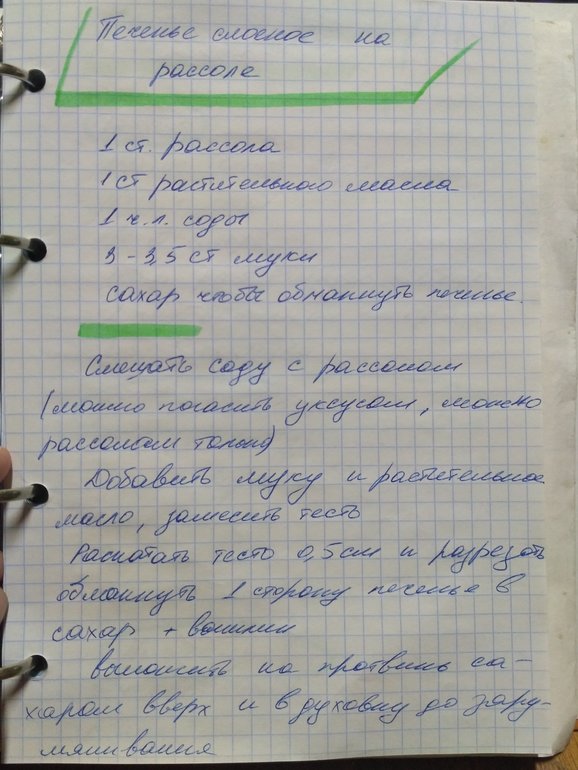 Печенье слоеное на
рассоле
1 ст. рассола
1 ст растительного масла
1 ч.л. соды
3 - 3,5 ст муки
сахар чтобы обмакнуть печенье.
Смешать соду с рассолом
(можно погасить уксусом, можно
рассолом только)
Добавить муку и растительное
масло, замесить тесто
Раскатать тесто 0,5 см и разрезать
обмакнуть 1 сторону печенье в
сахар + ванилин
выложить на противень са-
харом вверх и в духовку до зару-
мянивания